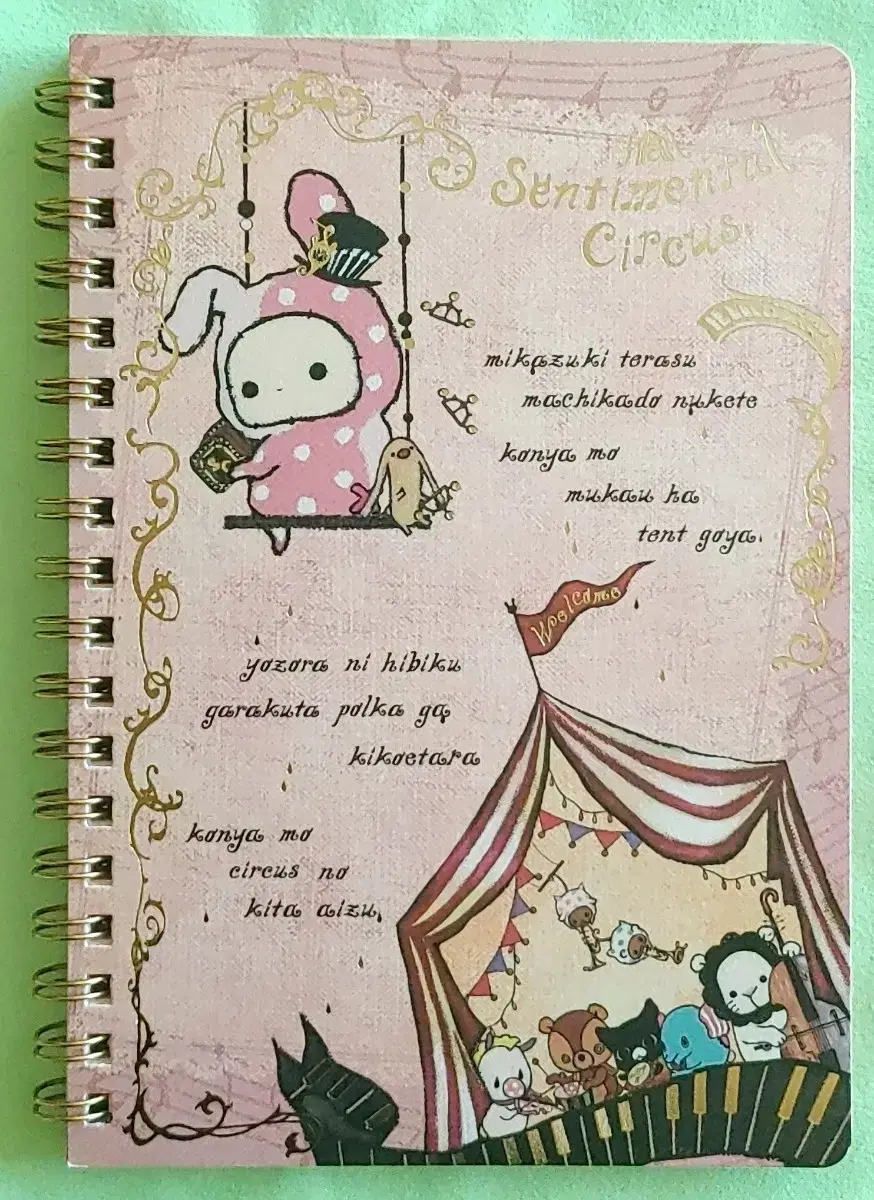 Sentimental
Circus
mikazuki terasu
machikado nukete
konya mo
mukau ha
tent goya.
Welcome
yozora ni hibiku
garakuta polka ga
kikoetara
konya mo
circus no
kita aizu.